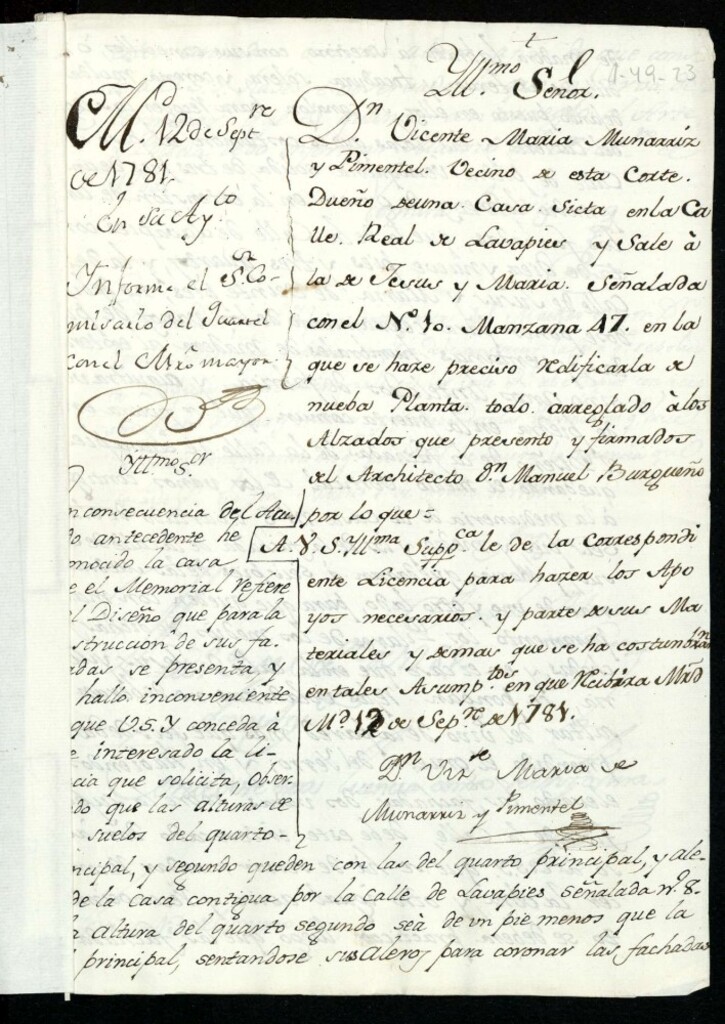 1-49-23
Yllmo. Señor.
Dn. Vicente Maria Munarriz
y Pimentel. Vecino de esta Corte.
Dueño de una. Casa. Sicta en la Ca
lle. Real de Lavapies y Sale à
la de Jesus y Maria. Señalada
con el N.º 10. Manzana 47. en la
que se haze preciso redificarla de
nueba Planta. todo arreglado à los
Alzados que presento y firmados
del Architecto Dn. Manuel Burgueño
por lo que=
A. V. S. Yllma Suppca. le de la Correspondi
ente Licencia para hazer los Apo
yos necesarios. y parte de sus Ma
teriales y demas que se ha costunbran
en tales Asumptos. en que recibira Mrd
Md 12 de Sepre. de 1781.
Dn Vizte Maria de
Munarriz y Pimentel
Md. 12 de Septre
de 1781.
En su Ayto.
Informe el Sor. Co-
misario del Quartel
con el Mro mayor.
Yllmo Sor
n consecuencia del Acu.
do antecedente he
onocido la casa
e el Memorial refiere
l Diseño que para la
strucción de sus fa.
adas se presenta, y
hallo inconveniente
que V.S.Y conceda à
e interesado la li-
cia que solicita, obser-
do que las alturas de
suelos del quarto-
ncipal, y segundo queden con las del quarto principal, y ale-
de la casa contigua por la calle de Lavapies señalada nº. 8-
a altura del quarto segundo seà de un pie menos que la
principal, sentandose sus Aleros para coronar las fachadas